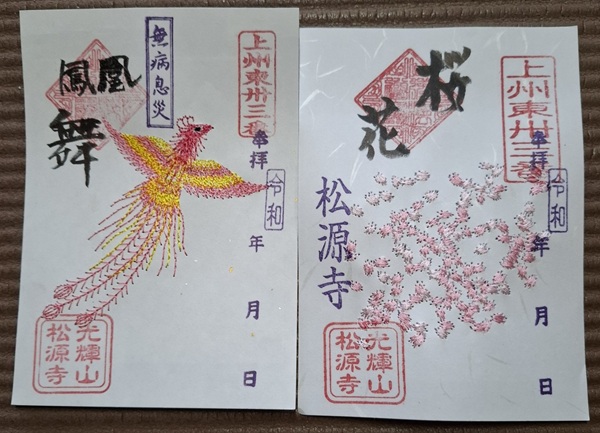 上州東卅三番
奉拝
令和
年
月
日
無病息災
鳳凰
舞
光輝山
松源寺
上州東卅三番
奉拝
令和
年
月
日
桜
花
松源寺
光輝山
松源寺